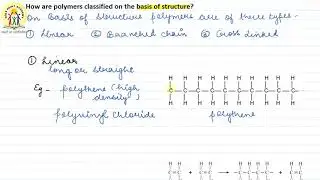 How are polymers classified on the basis of structure?
On basis of structure polymers are of three types-
① Linear ② Branched chain ③ Cross linked
① Linear
long or straight
Eg - polythene (high density)
polyvinyl chloride
polythene
H H H H H H H H H H
C C C C C C C C C C
H H H H H H H H H H
H H H H H H H H
C = C + C = C → C - C - C - C